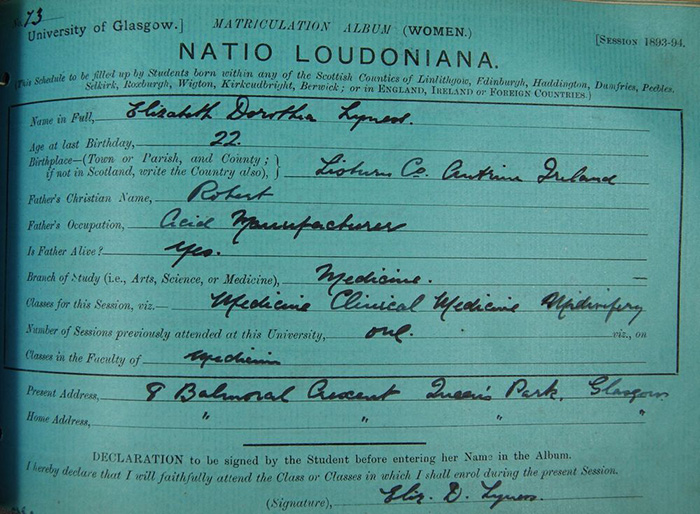 No. 73
University of Glasgow.] MATRICULATION ALBUM (WOMEN.)
[SESSION 1893-94.
NATIO LOUDONIANA.
(This Schedule to be filled up by Students born within any of the Scottish Counties of Linlithgow, Edinburgh, Haddington, Dumfries, Peebles,
Selkirk, Roxburgh, Wigton, Kirkcudbright, Berwick; or in ENGLAND, IRELAND or FOREIGN COUNTRIES.)
Name in Full, Elizabeth Dorothea Lyness.
Age at last Birthday, 22.
Birthplace—(Town or Parish, and County;
if not in Scotland, write the Country also), } Lisburn Co. Antrim Ireland
Father's Christian Name, Robert
Father's Occupation, Acid Manufacturer
Is Father Alive? Yes.
Branch of Study (i.e., Arts, Science, or Medicine), Medicine. —
Classes for this Session, viz.— Medicine Clinical Medicine Midwifery
Number of Sessions previously attended at this University, one. viz., on
Classes in the Faculty of Medicine
Present Address, 8 Balmoral Crescent Queen's Park. Glasgow
Home Address, " " " "
DECLARATION to be signed by the Student before entering her Name in the Album.
I hereby declare that I will faithfully attend the Class or Classes in which I shall enrol during the present Session.
(Signature), Eliz. D. Lyness.